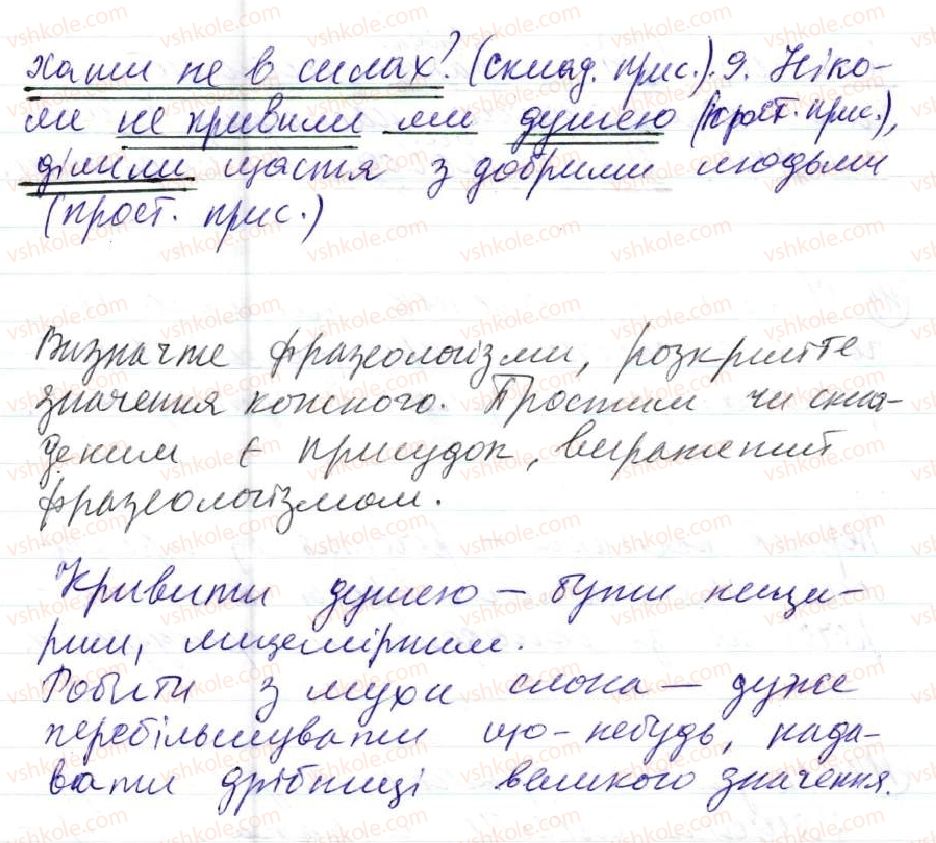 хати не в силах? (склад. прис.). 9. Ніко-
ли не кривили ми душею (прост. прис.),
ділили щастя з добрими людьми
(прост. прис.)
Визначте фразеологізми, розкрийте
значення кожного. Простим чи скла-
деним є присудок, виражений
фразеологізмом.
Кривити душею – бути нещи-
рим, лицемірним.
Робити з мухи слона – дуже
перебільшувати що-небудь, нада-
вати дрібниці великого значення.